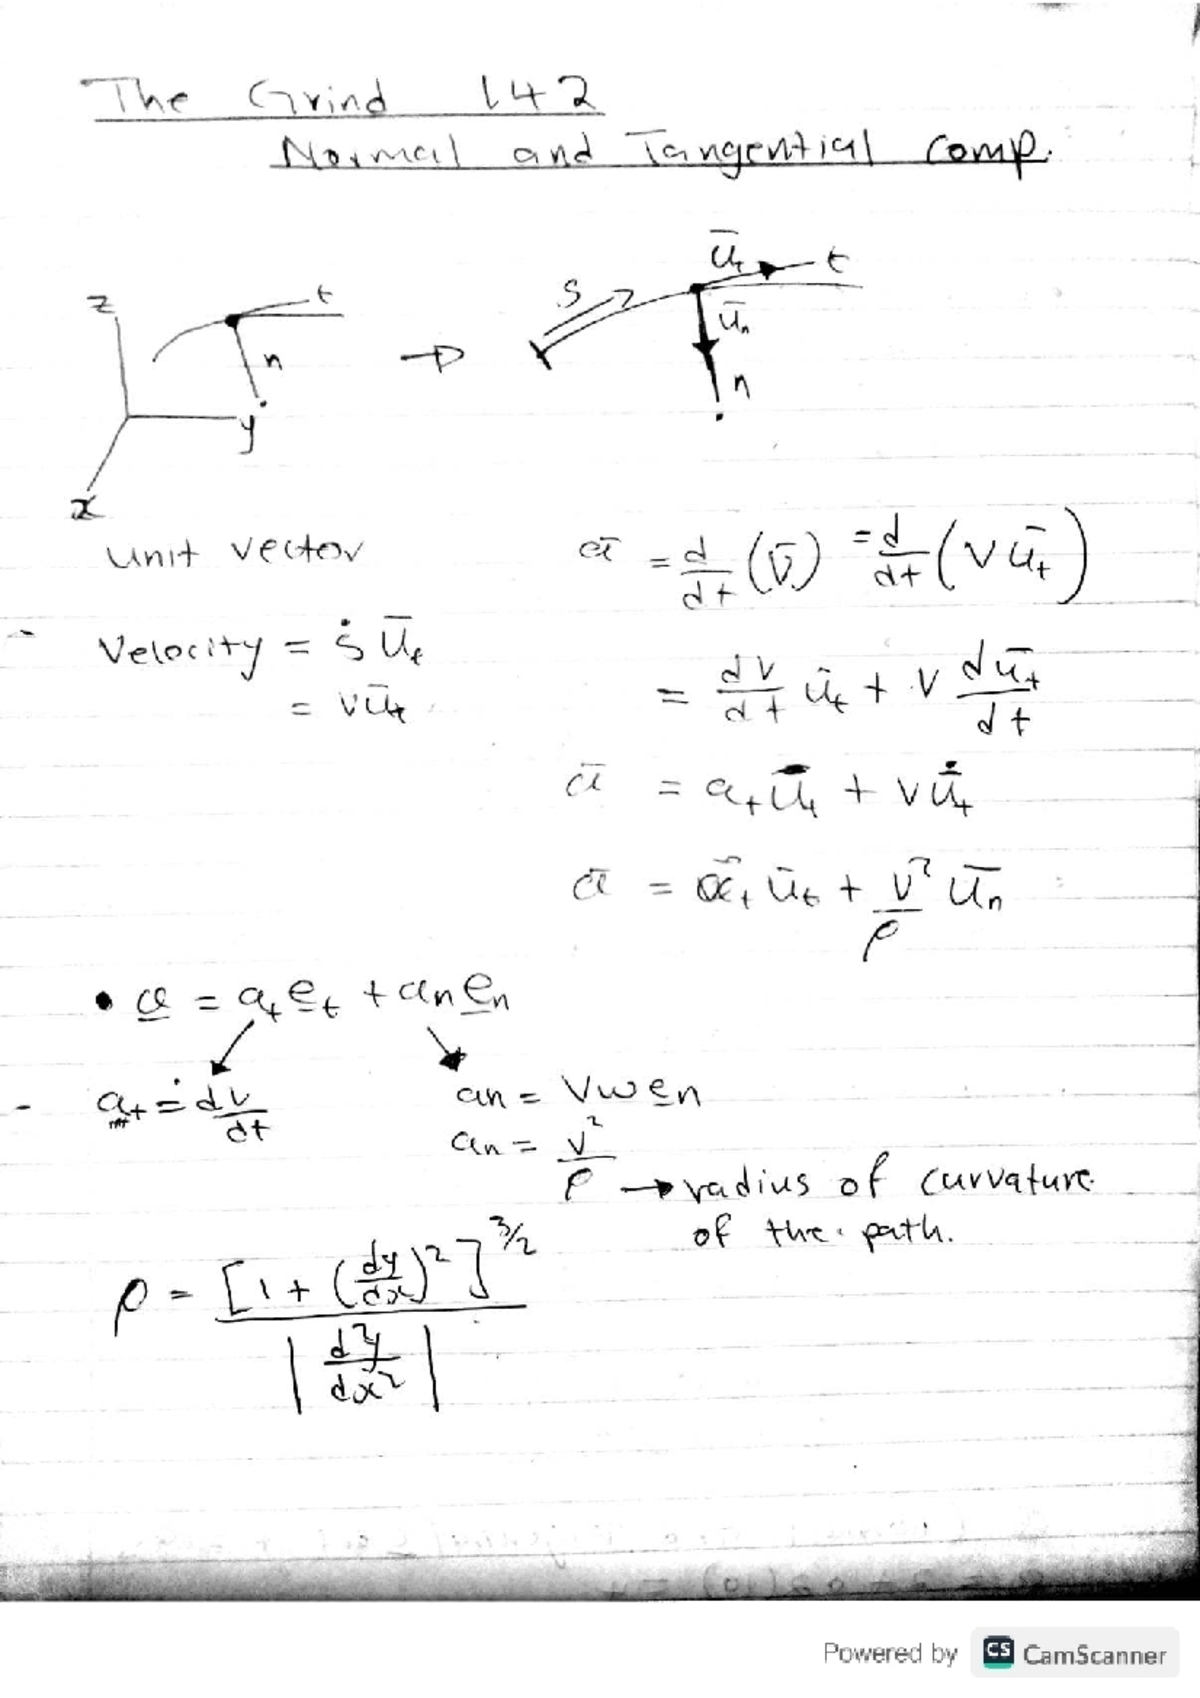 The Grind 142
Normal and Tangential comp.
z t n y x
s ū_t t ū_n n
unit vector
Velocity = ṡ ū_t
= v ū_t
ā = d/dt (v̄) = d/dt (v ū_t)
= dv/dt ū_t + v dū_t/dt
ā = a_t ū_t + v ū̇_t
ā = a_t ū_t + v²/ρ ū_n
• a = a_t e_t + a_n e_n
a_t = dv/dt
an = vω en
an = v²/ρ → radius of curvature
of the path.
ρ = [1 + (dy/dx)²]^3/2 / |d²y/dx²|
Powered by CS CamScanner